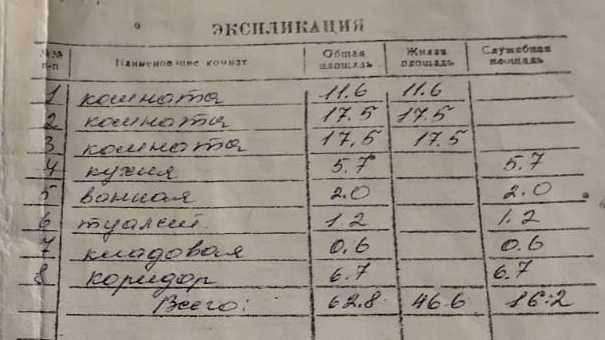 ЭКСПЛИКАЦИЯ
№ за п-п Наименование комнат Общая площадь Жилая площадь Служебная площадь
1 комната 11.6 11.6
2 комната 17.5 17.5
3 комната 17,5 17.5
4 кухня 5.7 5.7
5 ванная 2.0 2.0
6 туалет 1.2 1.2
7 кладовая 0.6 0.6
8 коридор 6.7 6.7
Всего: 62.8 46.6 16.2